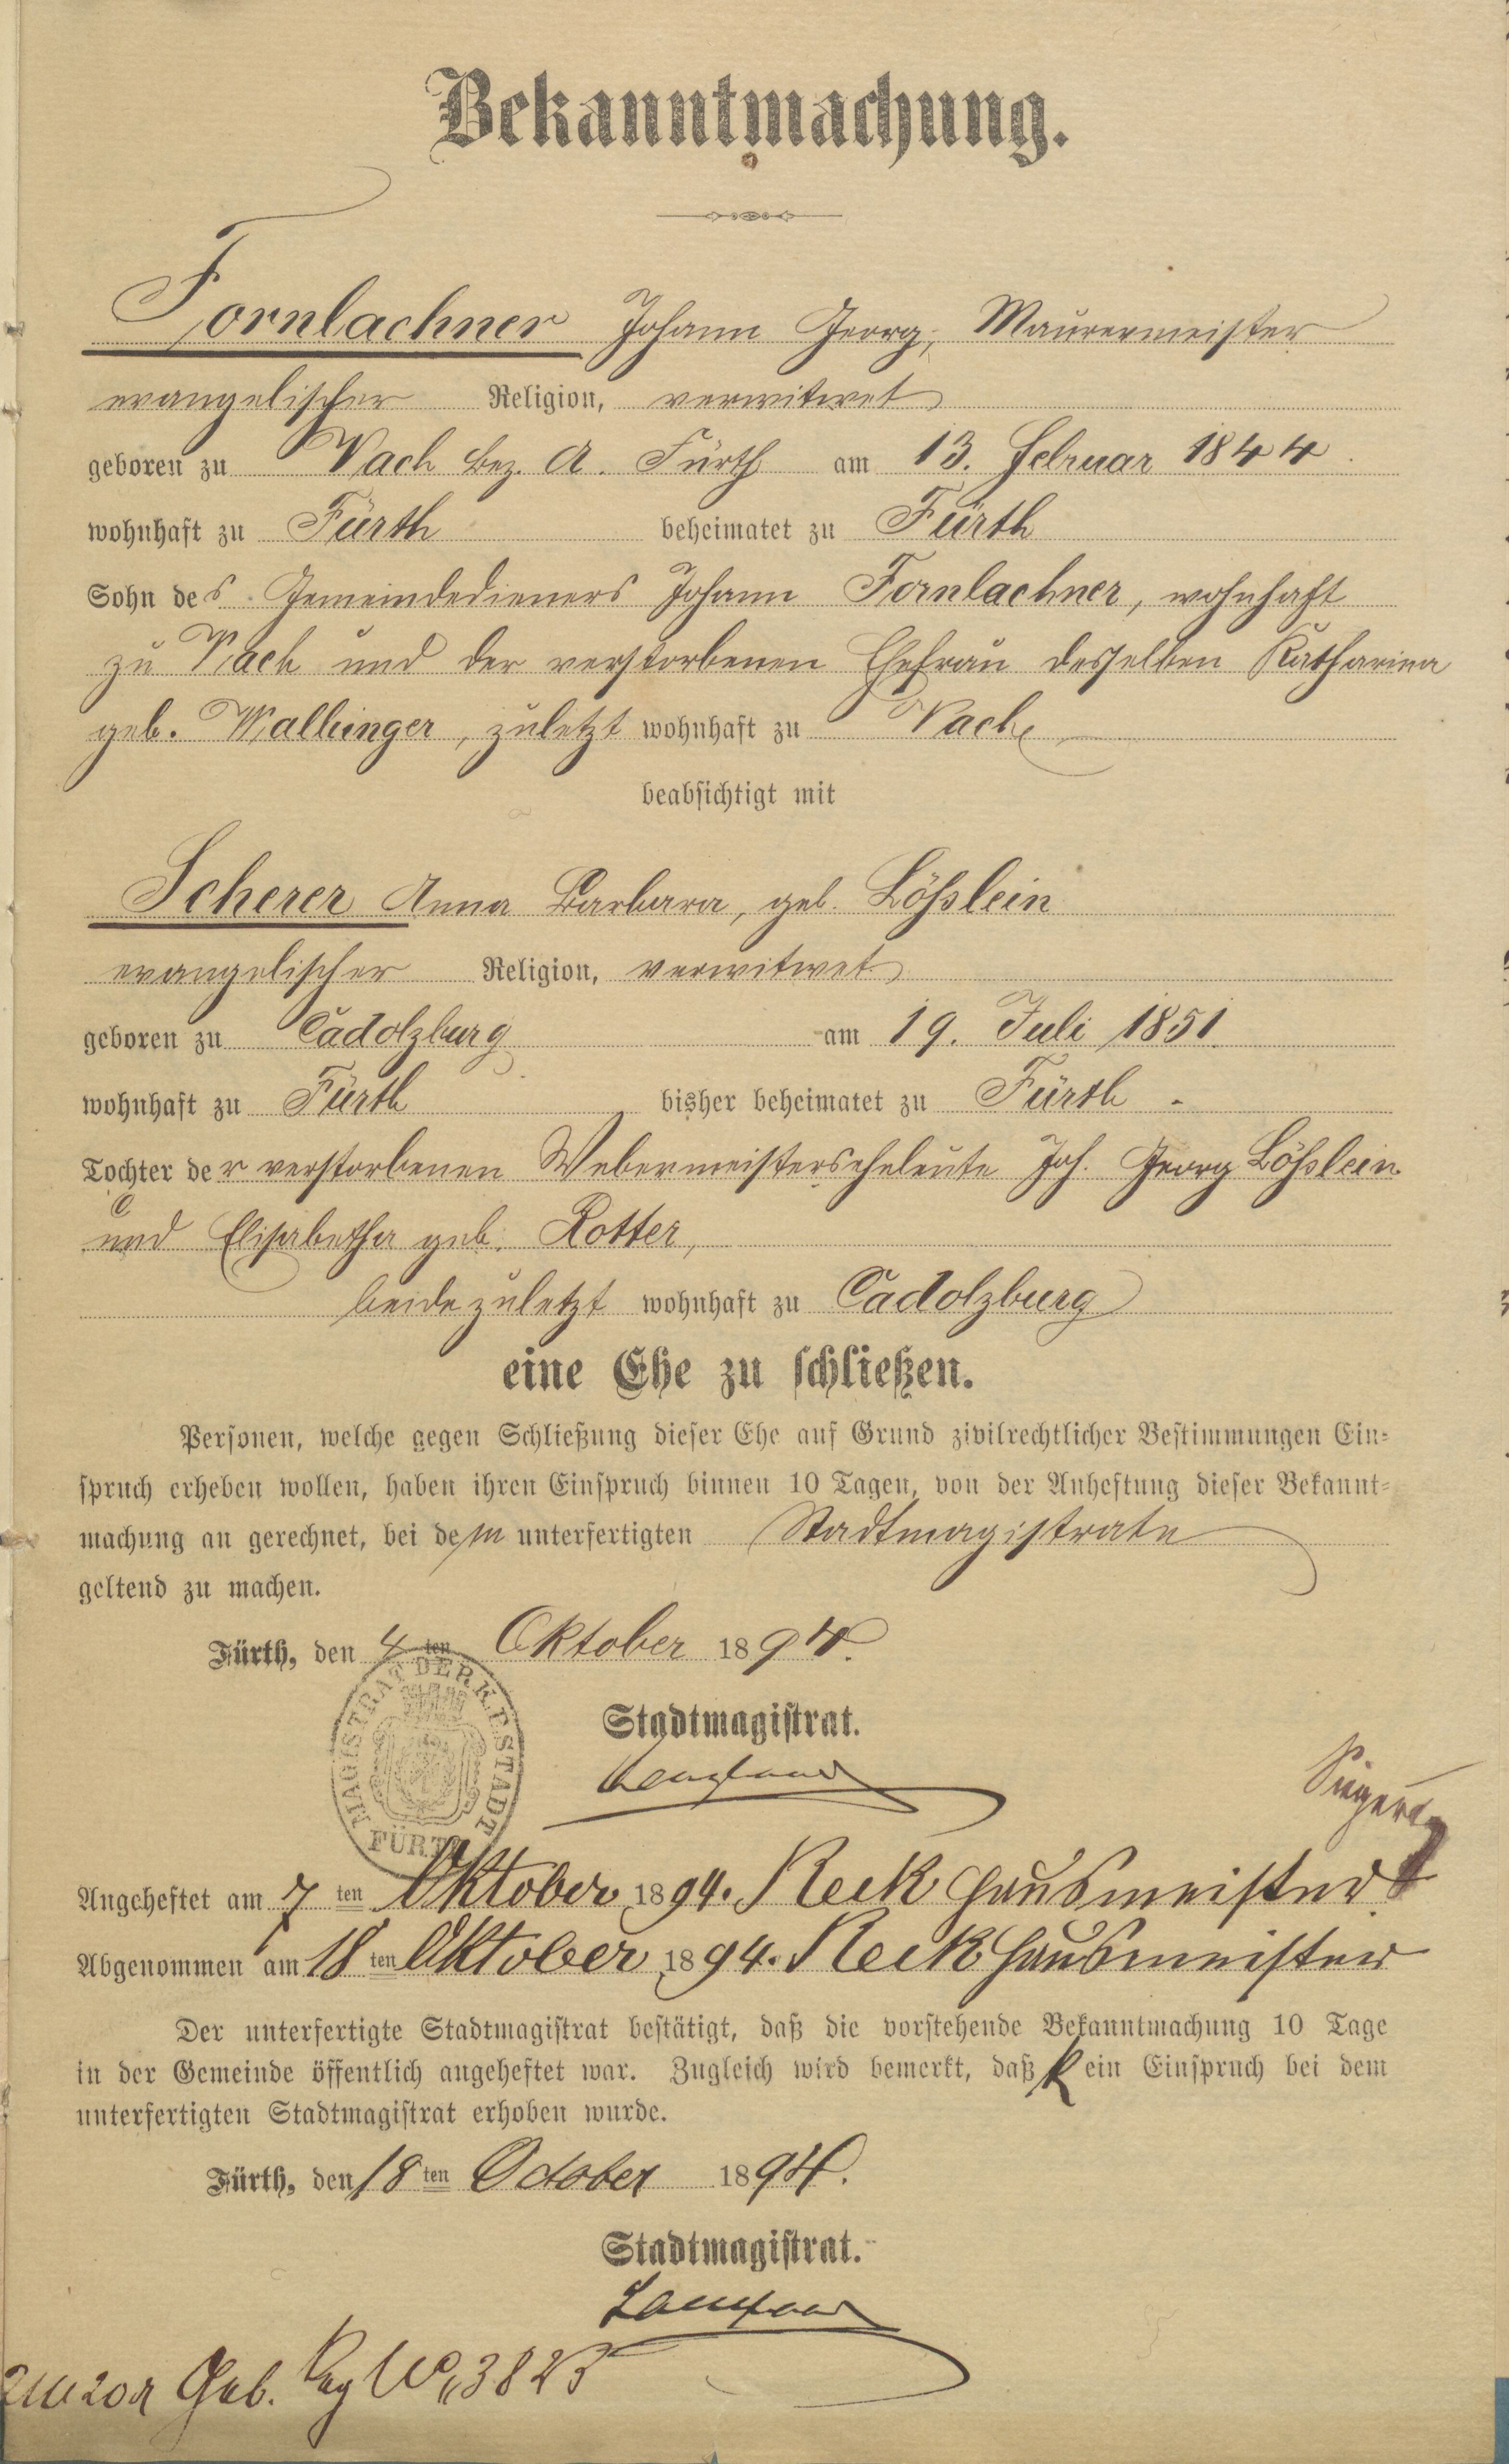 Bekanntmachung.
Fornbachner Johann Georg, Maurermeister
evangelischer Religion, verwitwet
geboren zu Vach Bez. A. Fürth am 13. Februar 1844.
wohnhaft zu Fürth beheimatet zu Fürth
Sohn des Gemeindedieners Johann Fornbachner, wohnhaft
zu Vach und der verstorbenen Ehefrau desselben Katharina
geb. , zuletzt wohnhaft zu Vach
beabsichtigt mit
Scherer Anna Barbara, geb. Lößlein
evangelischer Religion, verwitwet
geboren zu Cadolzburg am 19. Juli 1851.
wohnhaft zu Fürth bisher beheimatet zu Fürth -
Tochter der verstorbenen Webermeisterseheleute Joh. Georg Lößlein
und Elisabetha geb. Rotter,
beide zuletzt wohnhaft zu Cadolzburg
eine Ehe zu schließen.
Personen, welche gegen Schließung dieser Ehe auf Grund zivilrechtlicher Bestimmungen Ein-
spruch erheben wollen, haben ihren Einspruch binnen 10 Tagen, von der Anheftung dieser Bekannt-
machung an gerechnet, bei dem unterfertigten Stadtmagistrate
geltend zu machen.
Fürth, den 4ten Oktober 1894.
MAGISTRAT DER K.B. STADT FÜRTH
Stadtmagistrat.
Angeheftet am 7ten Oktober 1894. Reck Hausmeister
Abgenommen am 18ten Oktober 1894. Reck Hausmeister
Der unterfertigte Stadtmagistrat bestätigt, daß die vorstehende Bekanntmachung 10 Tage
in der Gemeinde öffentlich angeheftet war. Zugleich wird bemerkt, daß kein Einspruch bei dem
unterfertigten Stadtmagistrat erhoben wurde.
Fürth, den 18ten October 1894.
Stadtmagistrat.
Geb. Reg No 3825